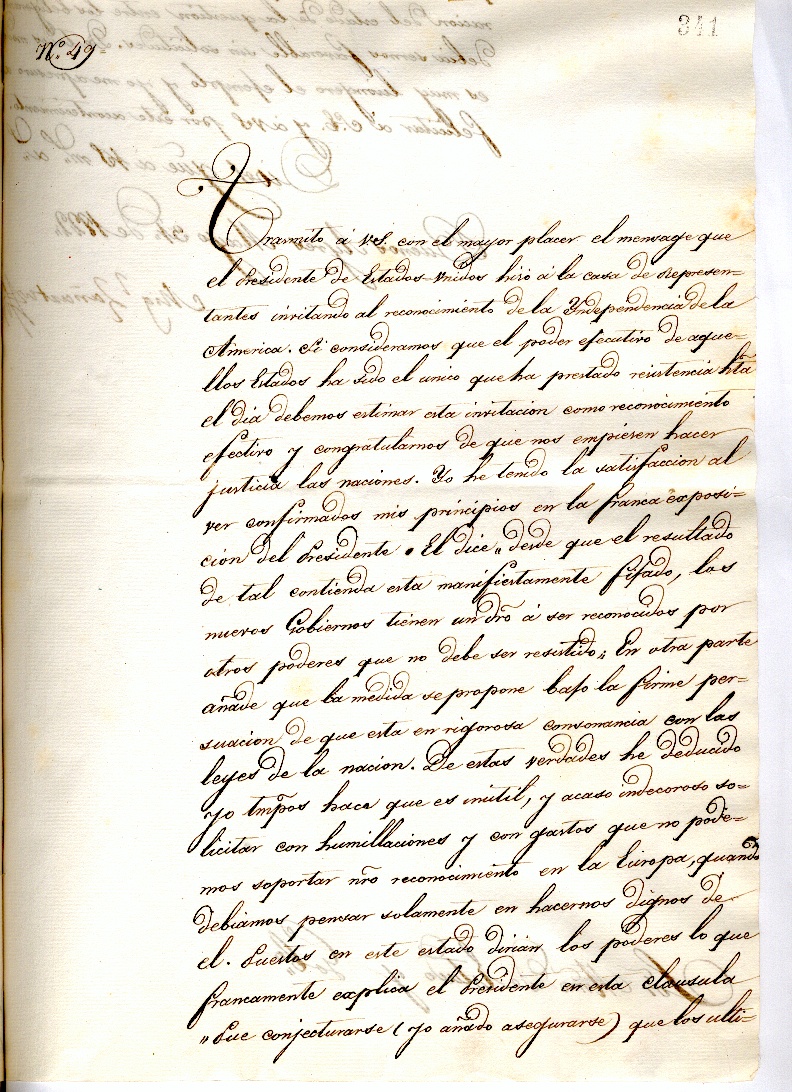 341
Nº 49
Tramito á V.S. con el mayor placer el mensage que
el Presidente de Estados-Unidos hizo á la casa de Represen=
tantes invitando al reconocimiento de la Yndependencia de la
America. Si consideramos que el poder efecutivo de aque=
llos Estados ha sido el unico que ha prestado resistencia hta
el dia debemos estimar esta invitacion como reconocimiento
efectivo y congratularnos de que nos empiesen hacer
justicia las naciones. Yo he tenido la satisfaccion al
ver confirmados mis principios en la franca exposi=
cion del Presidente. El dice „desde que el resultado
de tal contienda esta manifiestamente fifado, los
nuevos Gobiernos tienen un dro á ser reconocidos por
otros poderes que no debe ser resistido„ En otra parte
añade que la medida se propone bafo la firme per=
suacion de que esta en rigorosa consonancia con las
leyes de la nacion. De estas verdades he deducido
yo tmpos hace que es inutil, y acaso indecoroso so=
licitar con humillaciones y con gastos que no pode=
mos soportar nro reconocimiento en la Europa, quando
debiamos pensar solamente en hacernos dignos de
el. Puestos en este estado dirian los poderes lo que
francamente explica el Presidente en esta clausula
„Pue conjecturarse (yo añado asegurarse) que los ulti=